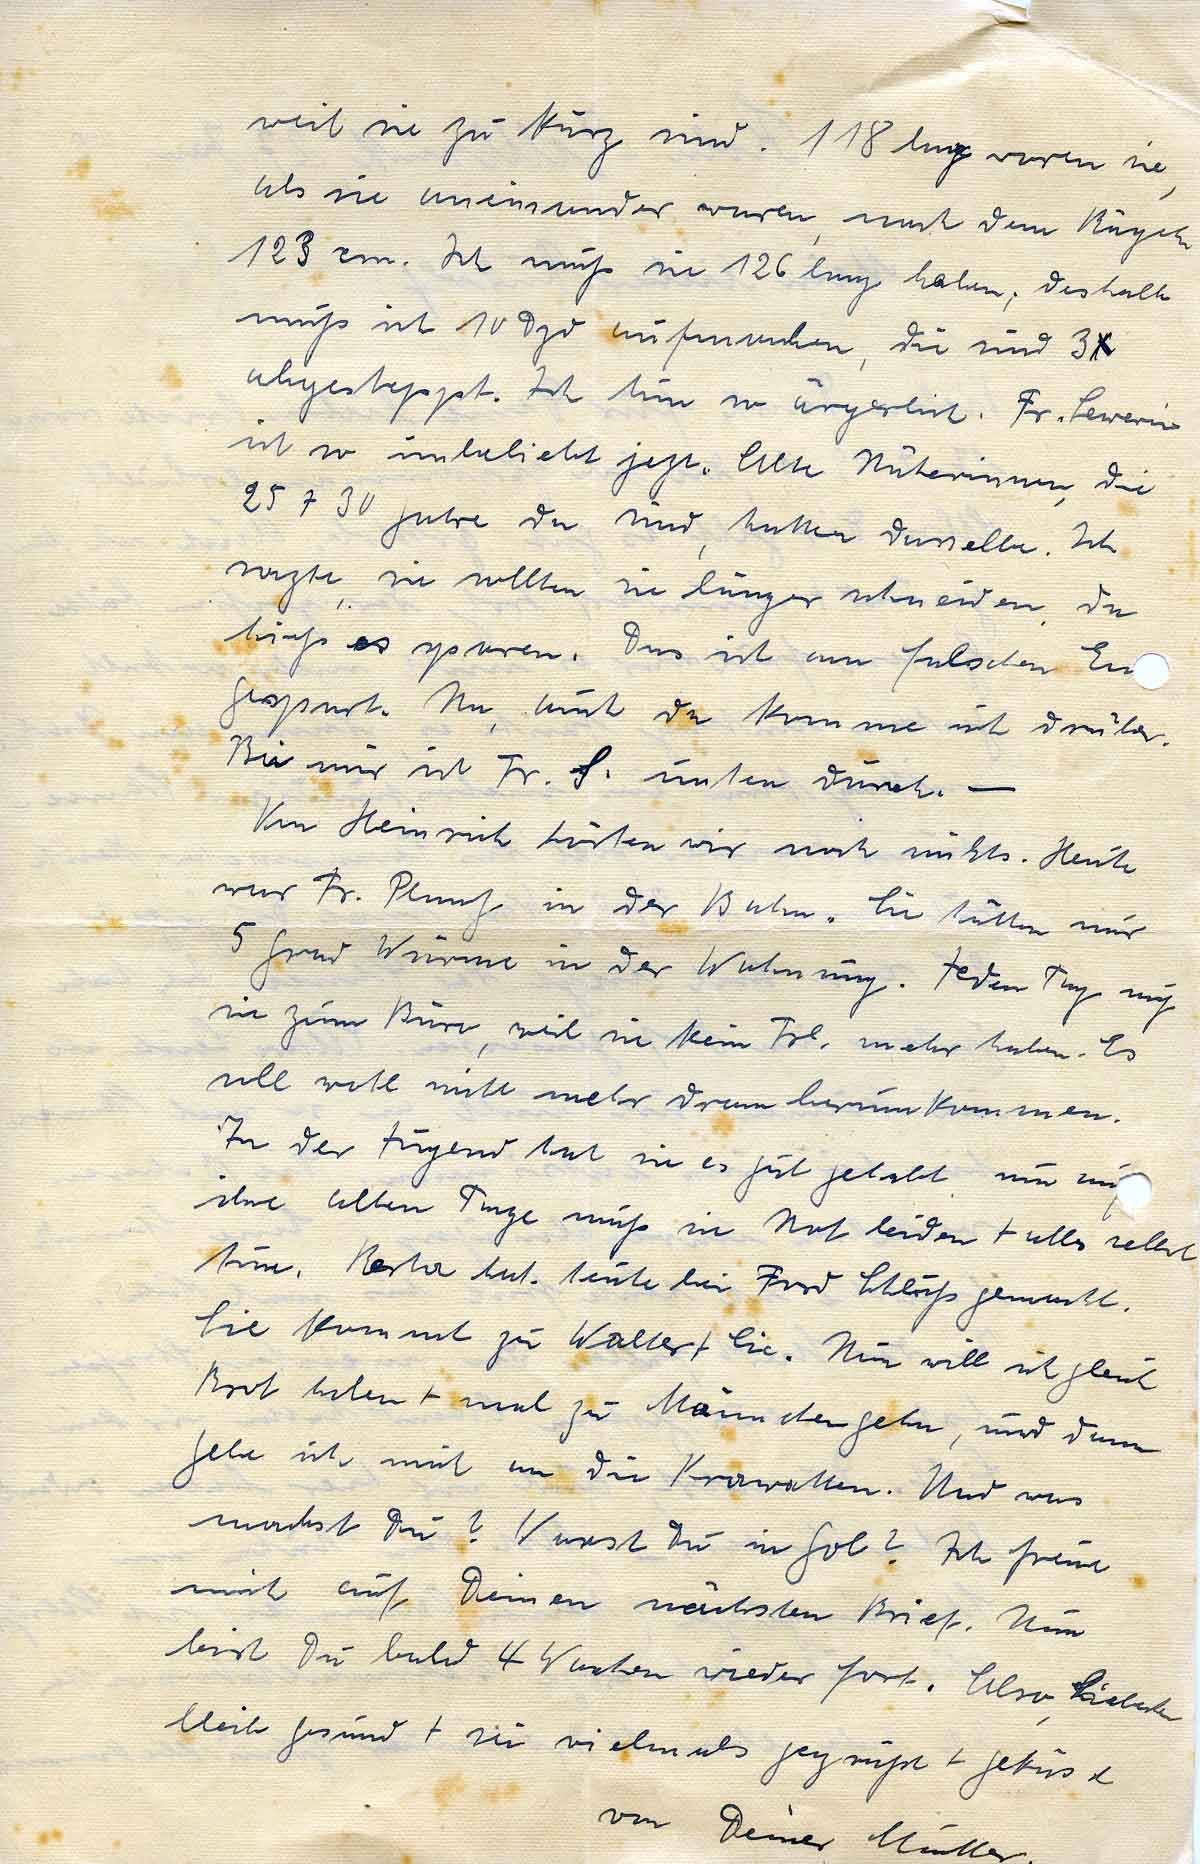 weil sie zu kurz sind. 118 lang waren sie,
als sie aneinander waren, nach dem Bügeln
123 cm. Ich muß sie 126 lang haben, deshalb
muß ich 10 Dzd aufmachen, die sind 3x
abgesteppt. Ich bin so ärgerlich. Fr. Severin
ist so unbeliebt jezt. Alte Näherinnen, die
25 + 30 Jahre da sind, hatten dasselbe. Ich
sagte, sie sollten sie länger schneiden, da
hieß es sparen. Das ist am falschen En
gespart. Na, auch da komme ich drüber.
Bei mir ist Fr. S. unten durch. —
Von Heinrich hörten wir noch nichts. Heute
war Fr. in der Bahn. Sie hätten nur
5 Grad Wärme in der Wohnung. Jeden Tag muß
sie zum Büro, weil sie kein Frl. mehr haben. Es
soll wohl nicht mehr drum herumkommen.
In der Jugend hat sie es gut gehabt nun auf
ihre alten Tage muß sie Not leiden + alles selbst
tun. Berta hat heute bei Ford Schluß gemacht.
Sie kommt zu Walter + Cie. Nun will ich gleich
Brot holen + mal zu Mänchen gehn, und dann
gebe ich mich an die Krawatten. Und was
machst Du? Warst Du in Gol? Ich freue
mich auf Deinen nächsten Brief. Nun
bist Du bald 4 Wochen wieder fort. Also, Liebster
bleib gesund + sei vielmals gegrüßt + geküs t
von Deiner Mutter.